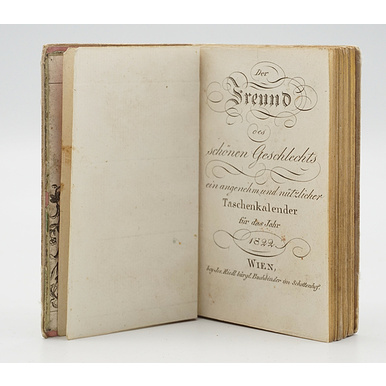 Der
Freund
des
schönen Geschlechts
ein angenehm und nützlicher
Taschenkalender
für das Jahr
1822
WIEN,
bürgl. Buchbinder im Schottenhof.